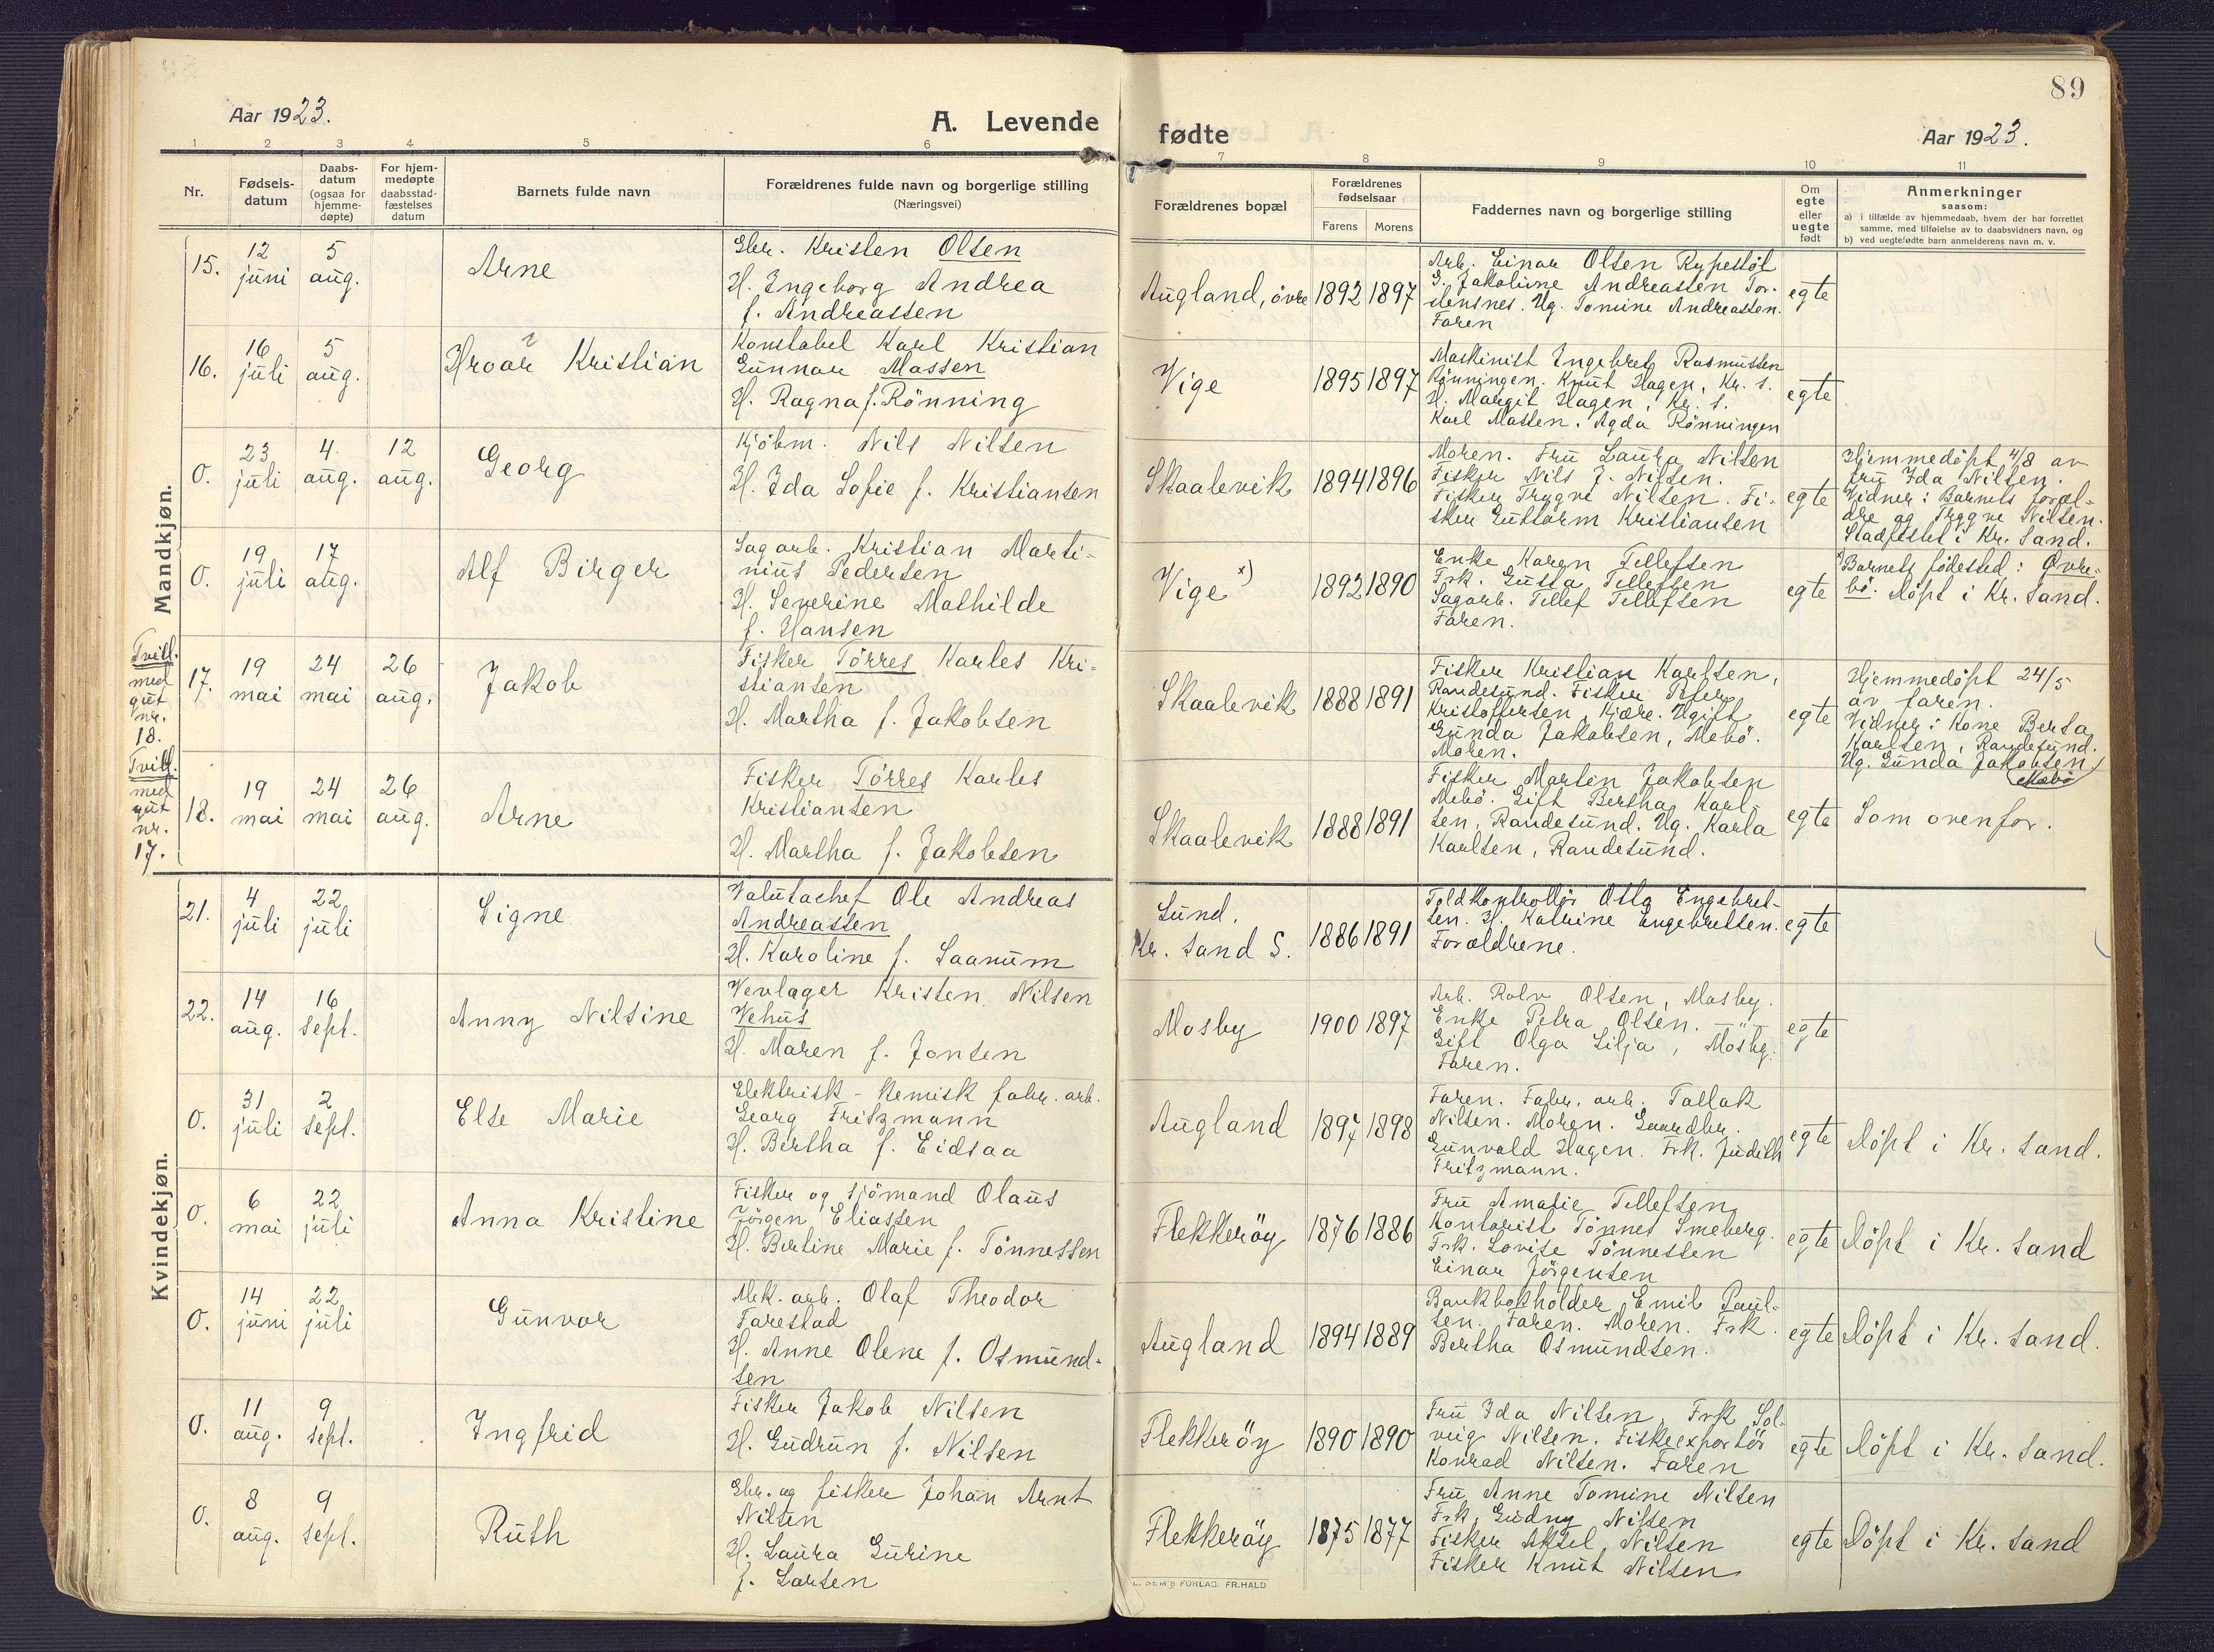 89
Aar 1923.
A. Levende fødte
Aar 1923.
1 2 3 4 5 6 7 8 9 10 11
Nr.
Fødsels-
datum
Daabs-
datum
(ogsaa for
hjemme-
døpte)
For hjem-
medøpte
daabsstad-
fæstelses
datum
Barnets fulde navn
Forældrenes fulde navn og borgerlige stilling
(Næringsvei)
Forældrenes bopæl
Forældrenes
fødselsaar
Farens Morens
Faddernes navn og borgerlige stilling
Om
egte
eller
uegte
født
Anmerkninger
saasom:
a) i tilfælde av hjemmedaab, hvem der har forrettet
samme, med tilføielse av to daabsvidners navn, og
b) ved uegtefødte barn anmelderens navn m. v.
Mandkjøn.
15.
12
juni
5
aug.
Arne
Gbr. Kristen Olsen
H. Ingeborg Andrea
f. Andreassen
Augland, övre
1892 1897
Arb. Einar Olsen Rypestöl
G. Jakobine Andreassen Tor-
stensnes. Ug. Tomine Andreassen.
Faren
egte
16.
16
juli
5
aug.
Hroar Kristian
Konstabel Karl Kristian
Gunnar Massen
H. Ragna f. Rönning
Vige
1895 1897
Maskinist Ingebret Rasmussen
Rönningen. Knut Hagen, Kr. s.
H. Margit Hagen, Kr. s.
Karl Massen. Agda Rönningen
egte
0.
23
juli
4.
aug.
12
aug.
Georg
Kjöbm. Nils Nilsen
H. Ida Sofie f. Kristiansen
Skaalevik
1894 1896
Moren. Fru Laura Nilsen
Fisker Nils J. Nilsen.
Fisker Trygve Nilsen. Fi-
sker Guttorm Kristiansen
egte
Hjemmedöpt 4/8 av
fru Ida Nilsen.
Vidner: Barnets foræl-
dre og Trygve Nilsen.
Stadfestet i Kr. sand.
0.
19
juli
17
aug.
Alf Birger
Sagarb. Kristian Marti-
nius Pedersen
H. Severine Mathilde
f. Hansen
Vige x)
1892 1890
Enke Karen Tellefsen
Frk. Gusta Tellefsen
Sagarb. Tellef Tellefsen
Faren.
egte
x) Barnets födested: Øvre-
bö. Döpt i Kr. sand.
Tvill.
med
gut
nr.
18.
17.
19
mai
24
mai
26
aug.
Jakob
Fisker Törres Karles Kri-
stiansen
H. Martha f. Jakobsen
Skaalevik
1888 1891
Fisker Kristian Karlsen,
Randesund. Fisker Peter
Kristoffersen, Kjære. Ugift
Gunda Jakobsen, Mebö.
Moren.
egte
Hjemmedöpt 24/5
av faren.
Vidner: Kone Berta
Karlsen, Randesund.
Ug. Gunda Jakobsen,
Mebö
Tvill.
med
gut
nr.
17.
18.
19
mai
24
mai
26
aug.
Arne
Fisker Törres Karles
Kristiansen
H. Martha f. Jakobsen
Skaalevik
1888 1891
Fisker Marten Jakobsen
Mebö. Gift Bertha Karl-
sen, Randesund. Ug. Karla
Karlsen, Randesund.
egte
Som ovenfor.
Kvindekjøn.
21.
4
juli
22
juli
Signe
Valutachef Ole Andreas
Andreassen
H. Karoline f. Saanum
Lund.
Kr. sand S.
1886 1891
Toldkontrollör Otto Engebret-
sen. H. Katrine Engebretsen.
Forældrene.
egte
22.
14
aug.
16
sept.
Anny Nilsine
Vevlager Kristen Nilsen
Vehus
H. Maren f. Jonsen
Mosby
1900 1897
Arb. Rolv Olsen, Mosby.
Enke Petra Olsen. —"—
Gift Olga Lilja, Mosby.
Faren.
egte
0.
31
juli
2
sept.
Else Marie
Elektrisk-kemisk fabr. arb.
Georg Fritzmann
H. Bertha f. Eidsaa
Augland
1897 1898
Faren. Fabr. arb. Tallak
Nilsen. Moren. Gaardbr.
Gunvald Hagen. Frk. Judith
Fritzmann.
egte
Döpt i Kr. sand.
0.
6
mai
22
juli
Anna Kristine
Fisker og sjömand Olaus
Jörgen Eliassen
H. Bertine Marie f. Tönnessen
Flekkeröy
1876 1886
Fru Amalie Tellefsen
Kontorist Tönnes Smeberg.
Frk. Lovise Tönnessen
Einar Jörgensen
egte
Döpt i Kr. sand
0.
14
juni
22
juli
Gunvor
Mek. arb. Olaf Theodor
Farestad
H. Anne Olene f. Osmund-
sen
Augland
1894 1889
Bankbokholder Emil Paul-
sen. Faren. Moren. Frk.
Bertha Osmundsen.
egte
Döpt i Kr. sand.
0.
11
aug.
9
sept.
Ingfrid
Fisker Jakob Nilsen
H. Gudrun f. Nilsen
Flekkeröy
1890 1890
Fru Ida Nilsen, Frk Sol-
veig Nilsen. Fiskeexportör
Konrad Nilsen. Faren
egte
Döpt i Kr. sand.
0.
8
aug.
9
sept.
Ruth
Gbr. og fisker Johan Arnt
Nilsen
H. Laura Gurine
f. Larsen
Flekkeröy
1875 1877
Fru Anne Tomine Nilsen
Frk. Gudny Nilsen
Fisker Aksel Nilsen
Fisker Knut Nilsen
egte
Döpt i Kr. sand
FORLAG. FR.HALD